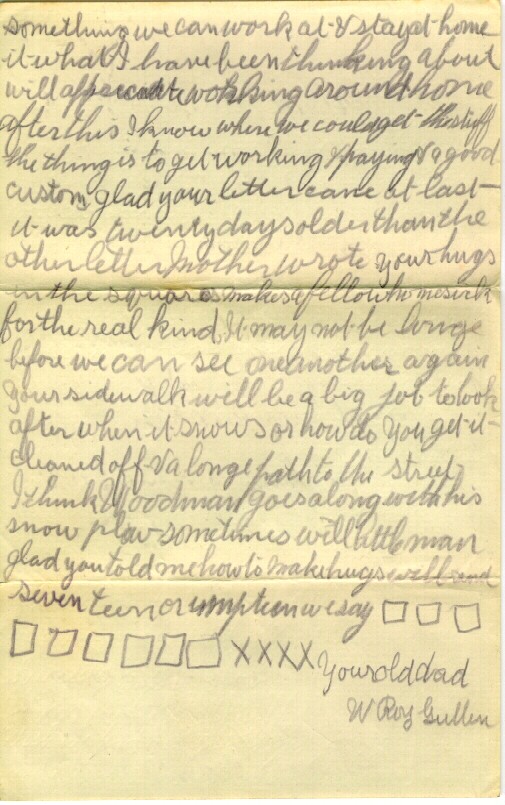 something we can work at & stay at home
it what I have been thinking about
will working around home
after this I know where we could get the stuff
the thing is to get working & paying & a good
custom glad your letter came at last
it was twenty days older than the
other letter Mother wrote your hugs
in the squares makes a fellow homesick
for the real kind. It may not be longe
before we can see one another again
your sidewalk will be a big job to look
after when it snows or how do you get it
cleaned off & a longe path to the street
I think Woodman goes along with his
snow plow sometimes will little man
glad you told me how to make hugs will send
seventeen or umpteen we say □ □ □
□ □ □ □ □ □ XXXX Your old dad
W Roy Gullen